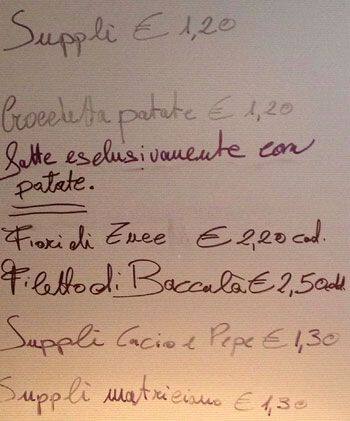 Suppli € 1,20
Crocchetta patate € 1,20
fatte esclusivamente con
patate.
Fiori di Zucc € 2,20 cad.
Filetto di Baccalà € 2,50 cad.
Suppli Cacio e Pepe € 1,30
Suppli matriciano € 1,30